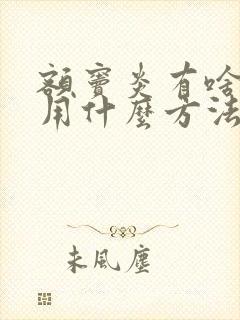 额窦炎有啥
用什麽方法
未風塵